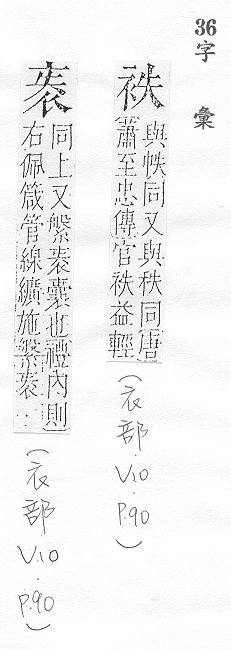 36
字彙
袟
與帙同又與秩同唐
蕭至忠傳官袟益輕
(衣部.V.10.P.90)
袠
同上又縏袠囊也禮內則
右佩箴管線纊施縏袠..
(衣部V.10.P.90)